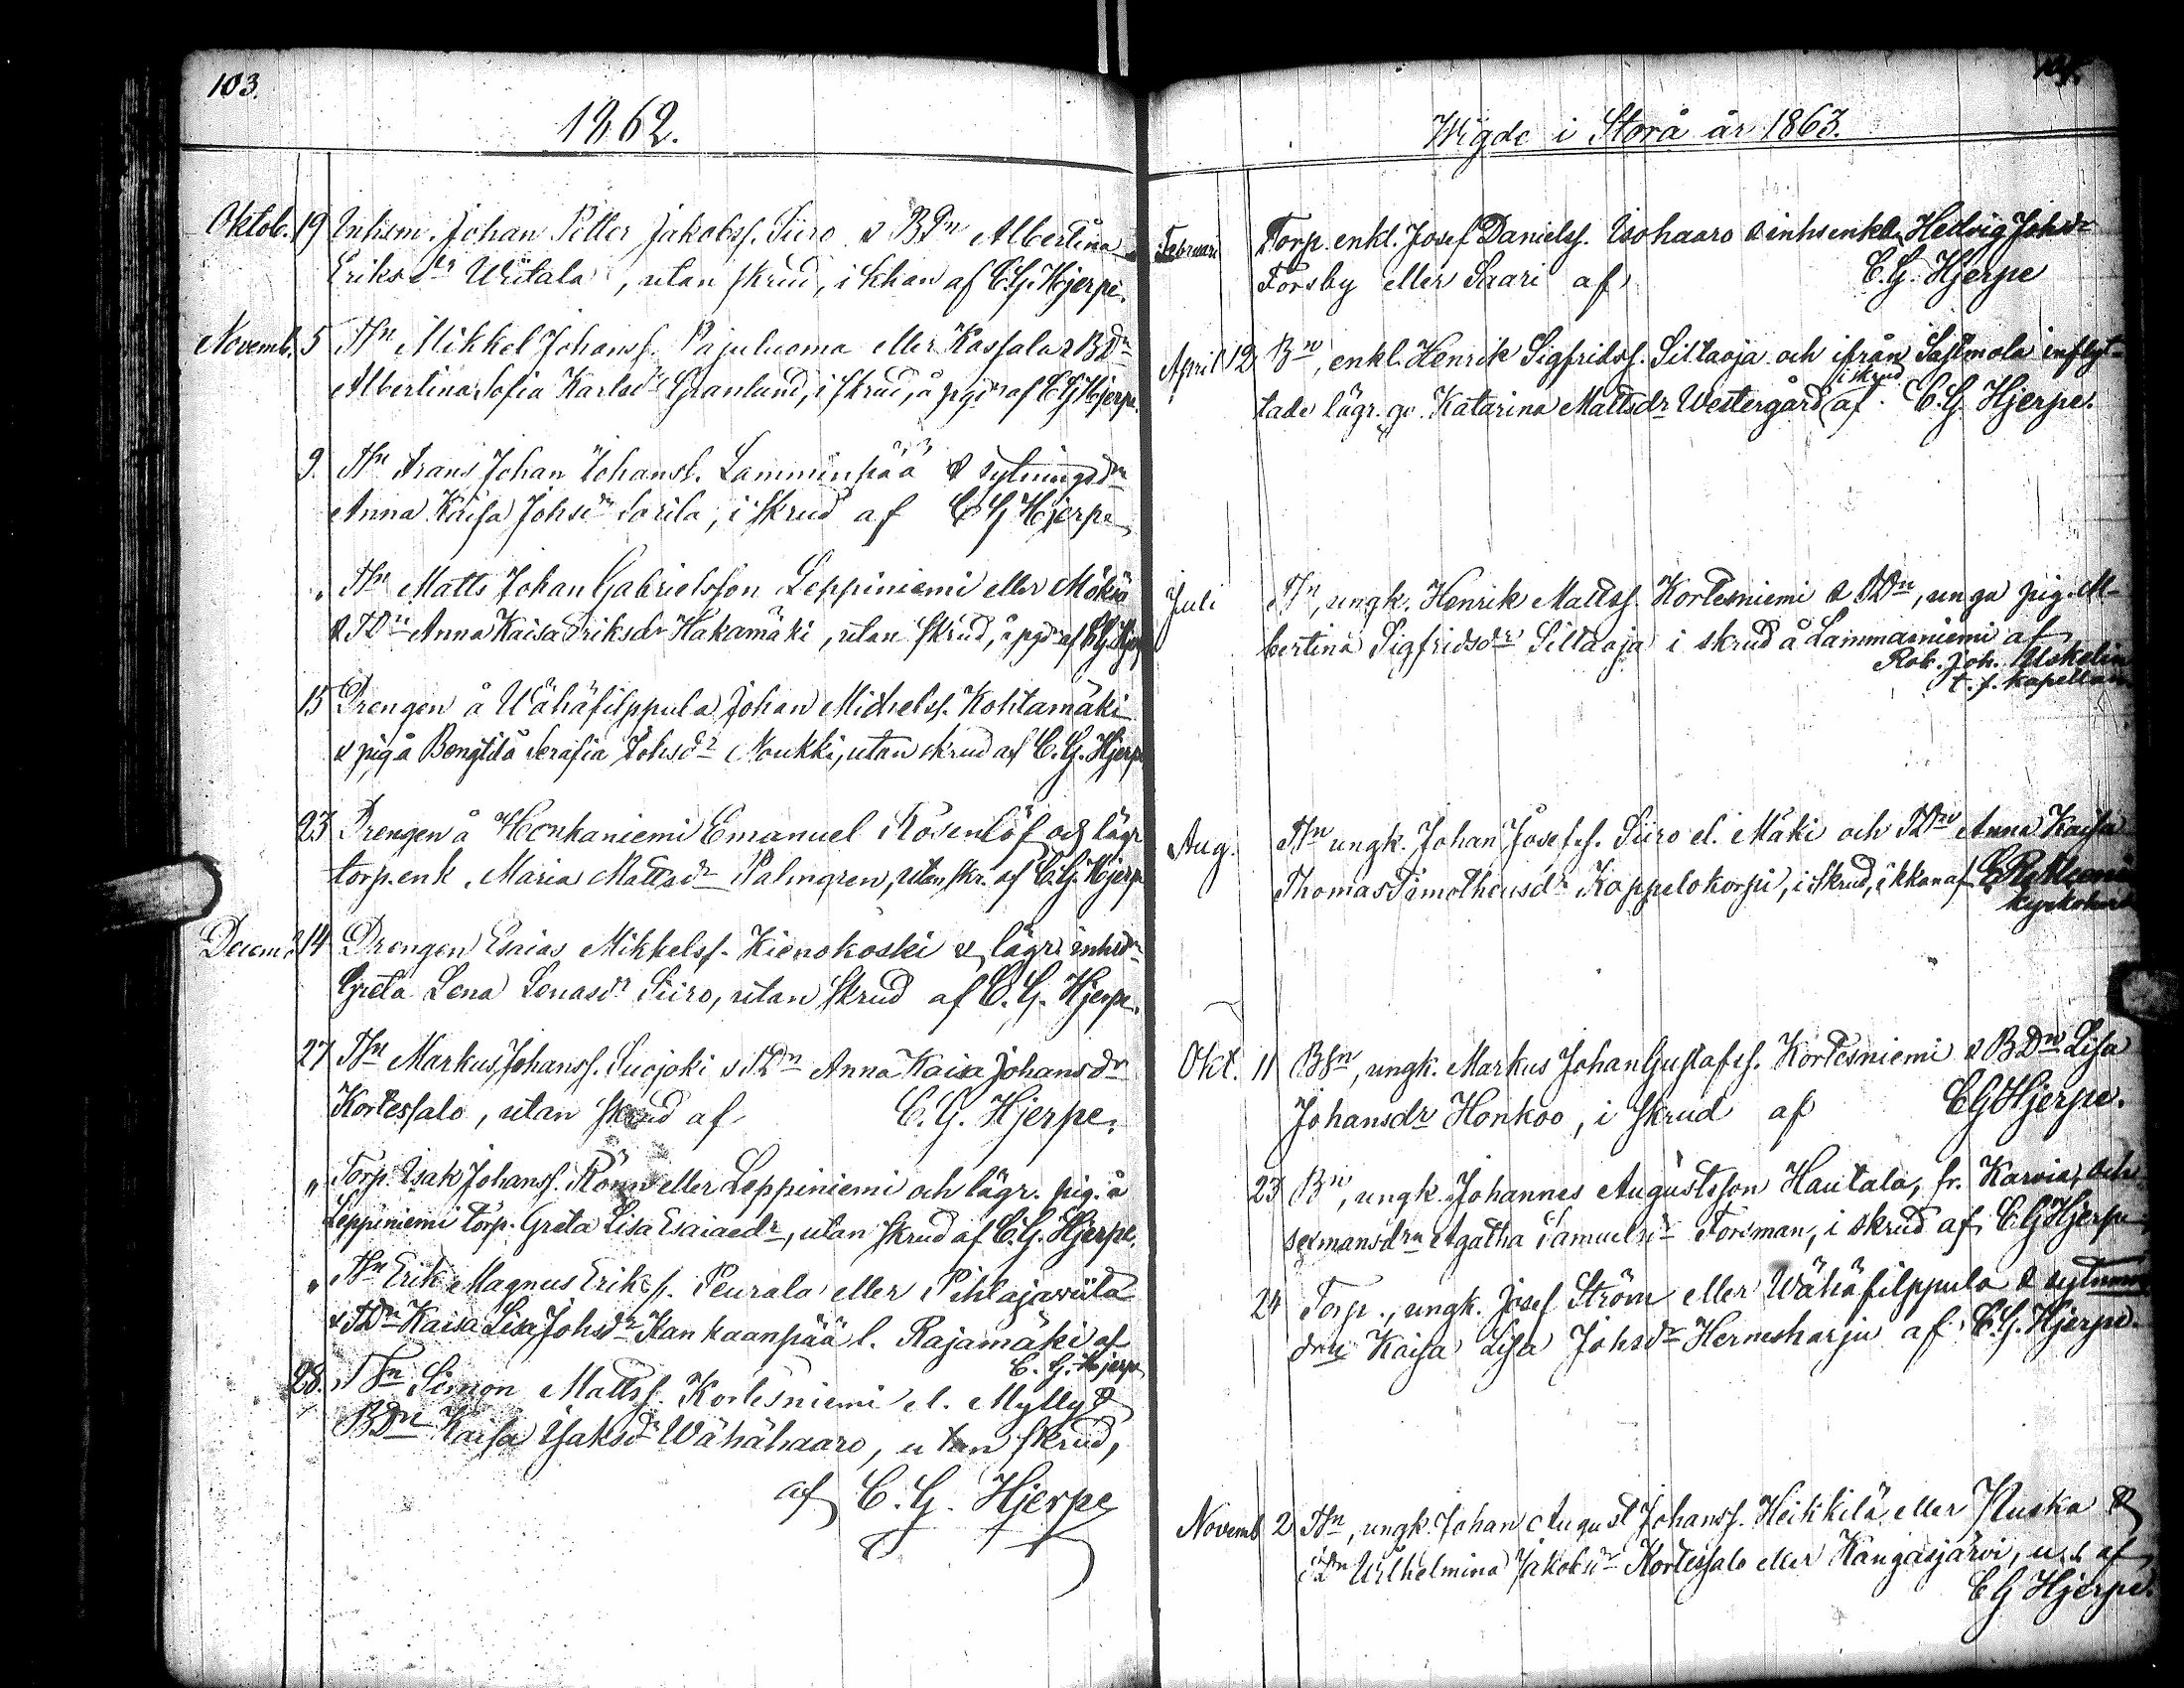 103.
1862.
Oktob. 19 Inhsm. Johan Petter Jakobss. Siiro & BDn Albertina
Eriksdr Witala, utan skrud, i khan af C.G. Hjerpe.
Novemb. 5 Tsn Mikkel Johanss. Pajuluoma eller Kassala & BDn
Albertina Sofia Karlsdr Granlund, i skrud, å pgdn af CG Hjerpe.
9. Tsn Frans Johan Johanss. Lamminpää & sytningsdn
Anna Kaisa Johsdr Sorila, i skrud af CG Hjerpe
" Tsn Matts Johan Gabrielsson Leppiniemi eller Mökiä
& TDn Anna Kaisa Eriksdr Hakamäki, utan skrud, å pgdn af CG Hjerpe
15 Drengen å Wähäfilppula Johan Michelss. Kohtamäki
& pig å Bengtilä Serafia Johsdr Noukki, utan skrud af C.G. Hjerpe
23 Drengen å Honkaniemi Emanuel Rosenlöf och lägr.
torp.enk. Maria Mattsdr Palmgren, utan skr. af C.G. Hjerpe
Decemb. 14 Drengen Esaias Mikkelss. Kienokoski & lägr. inhsdn
Greta Lena Lenasdr Siiro, utan skrud af C.G. Hjerpe.
27 Tsn Markus Johanss. Suojoki & TDn Anna Kaisa Johansdr
Kortessalo, utan skrud af C.G. Hjerpe.
" Torp. Isak Johanss. Rönn eller Leppiniemi och lägr. pig. å
Leppiniemi torp. Greta Lisa Esaiaedr, utan skrud af C.G. Hjerpe.
" Tsn Erik Magnus Erikss. Peurala eller Pihlajawiita
& TDn Kaisa Lisa Johsdr Kankaanpää l. Rajamäki af
C.G. Hjerpe
28. TSn Simon Mattss. Kortesniemi el. Mylly &
BDn Kaisa Isaksdr Wähähaaro, utan skrud,
af C.G. Hjerpe
Wigde i Storå år 1863.
Februari Torp. enkl. Josef Danielss. Isohaaro & inhsenka Hedvig Johsdr
Forsby eller Saari af C.G. Hjerpe
April 12 Bn, enkl. Henrik Sigfridss. Siltaoja och ifrån Sastmola inflyt-
tade lägr. qv. Katarina Mattsdr Westergård i skrud af C.G. Hjerpe.
Juli Tsn, ungk. Henrik Mattss. Kortesniemi & TDn, unga pig. Al-
bertina Sigfridsdr Siltaoja i skrud å Lammasniemi af
Rob. Joh. Uskelin
t.f. kapellan
Aug. Tsn ungk. Johan Josefss. Siiro el. Mäki och TDn Anna Kaisa
Thomas Timotheusdr Koppelokorpi, i skrud, i kkan af
Okt. 11 BSn, ungk. Markus Johan Gustafss. Kortesniemi & BDn Lisa
Johansdr Honkoo, i skrud af CG Hjerpe.
23 Bn, ungk. Johannes Augustsson Hautala, fr. Karvia, och
sexmansdrn Agatha Samuelsdr Forsman, i skrud af CG Hjerpe
24 Torp., ungk. Josef Ström eller Wähäfilppula & sytnings
drn Kaisa Lisa Johsdr Hernesharju af C.G. Hjerpe.
Novemb 2 Tsn, ungk. Johan August Johanss. Heikkilä eller Kuska &
TDn Wilhelmina Jakobsdr Kortessalo eller Kangasjärvi, u.s. af
CG Hjerpe.